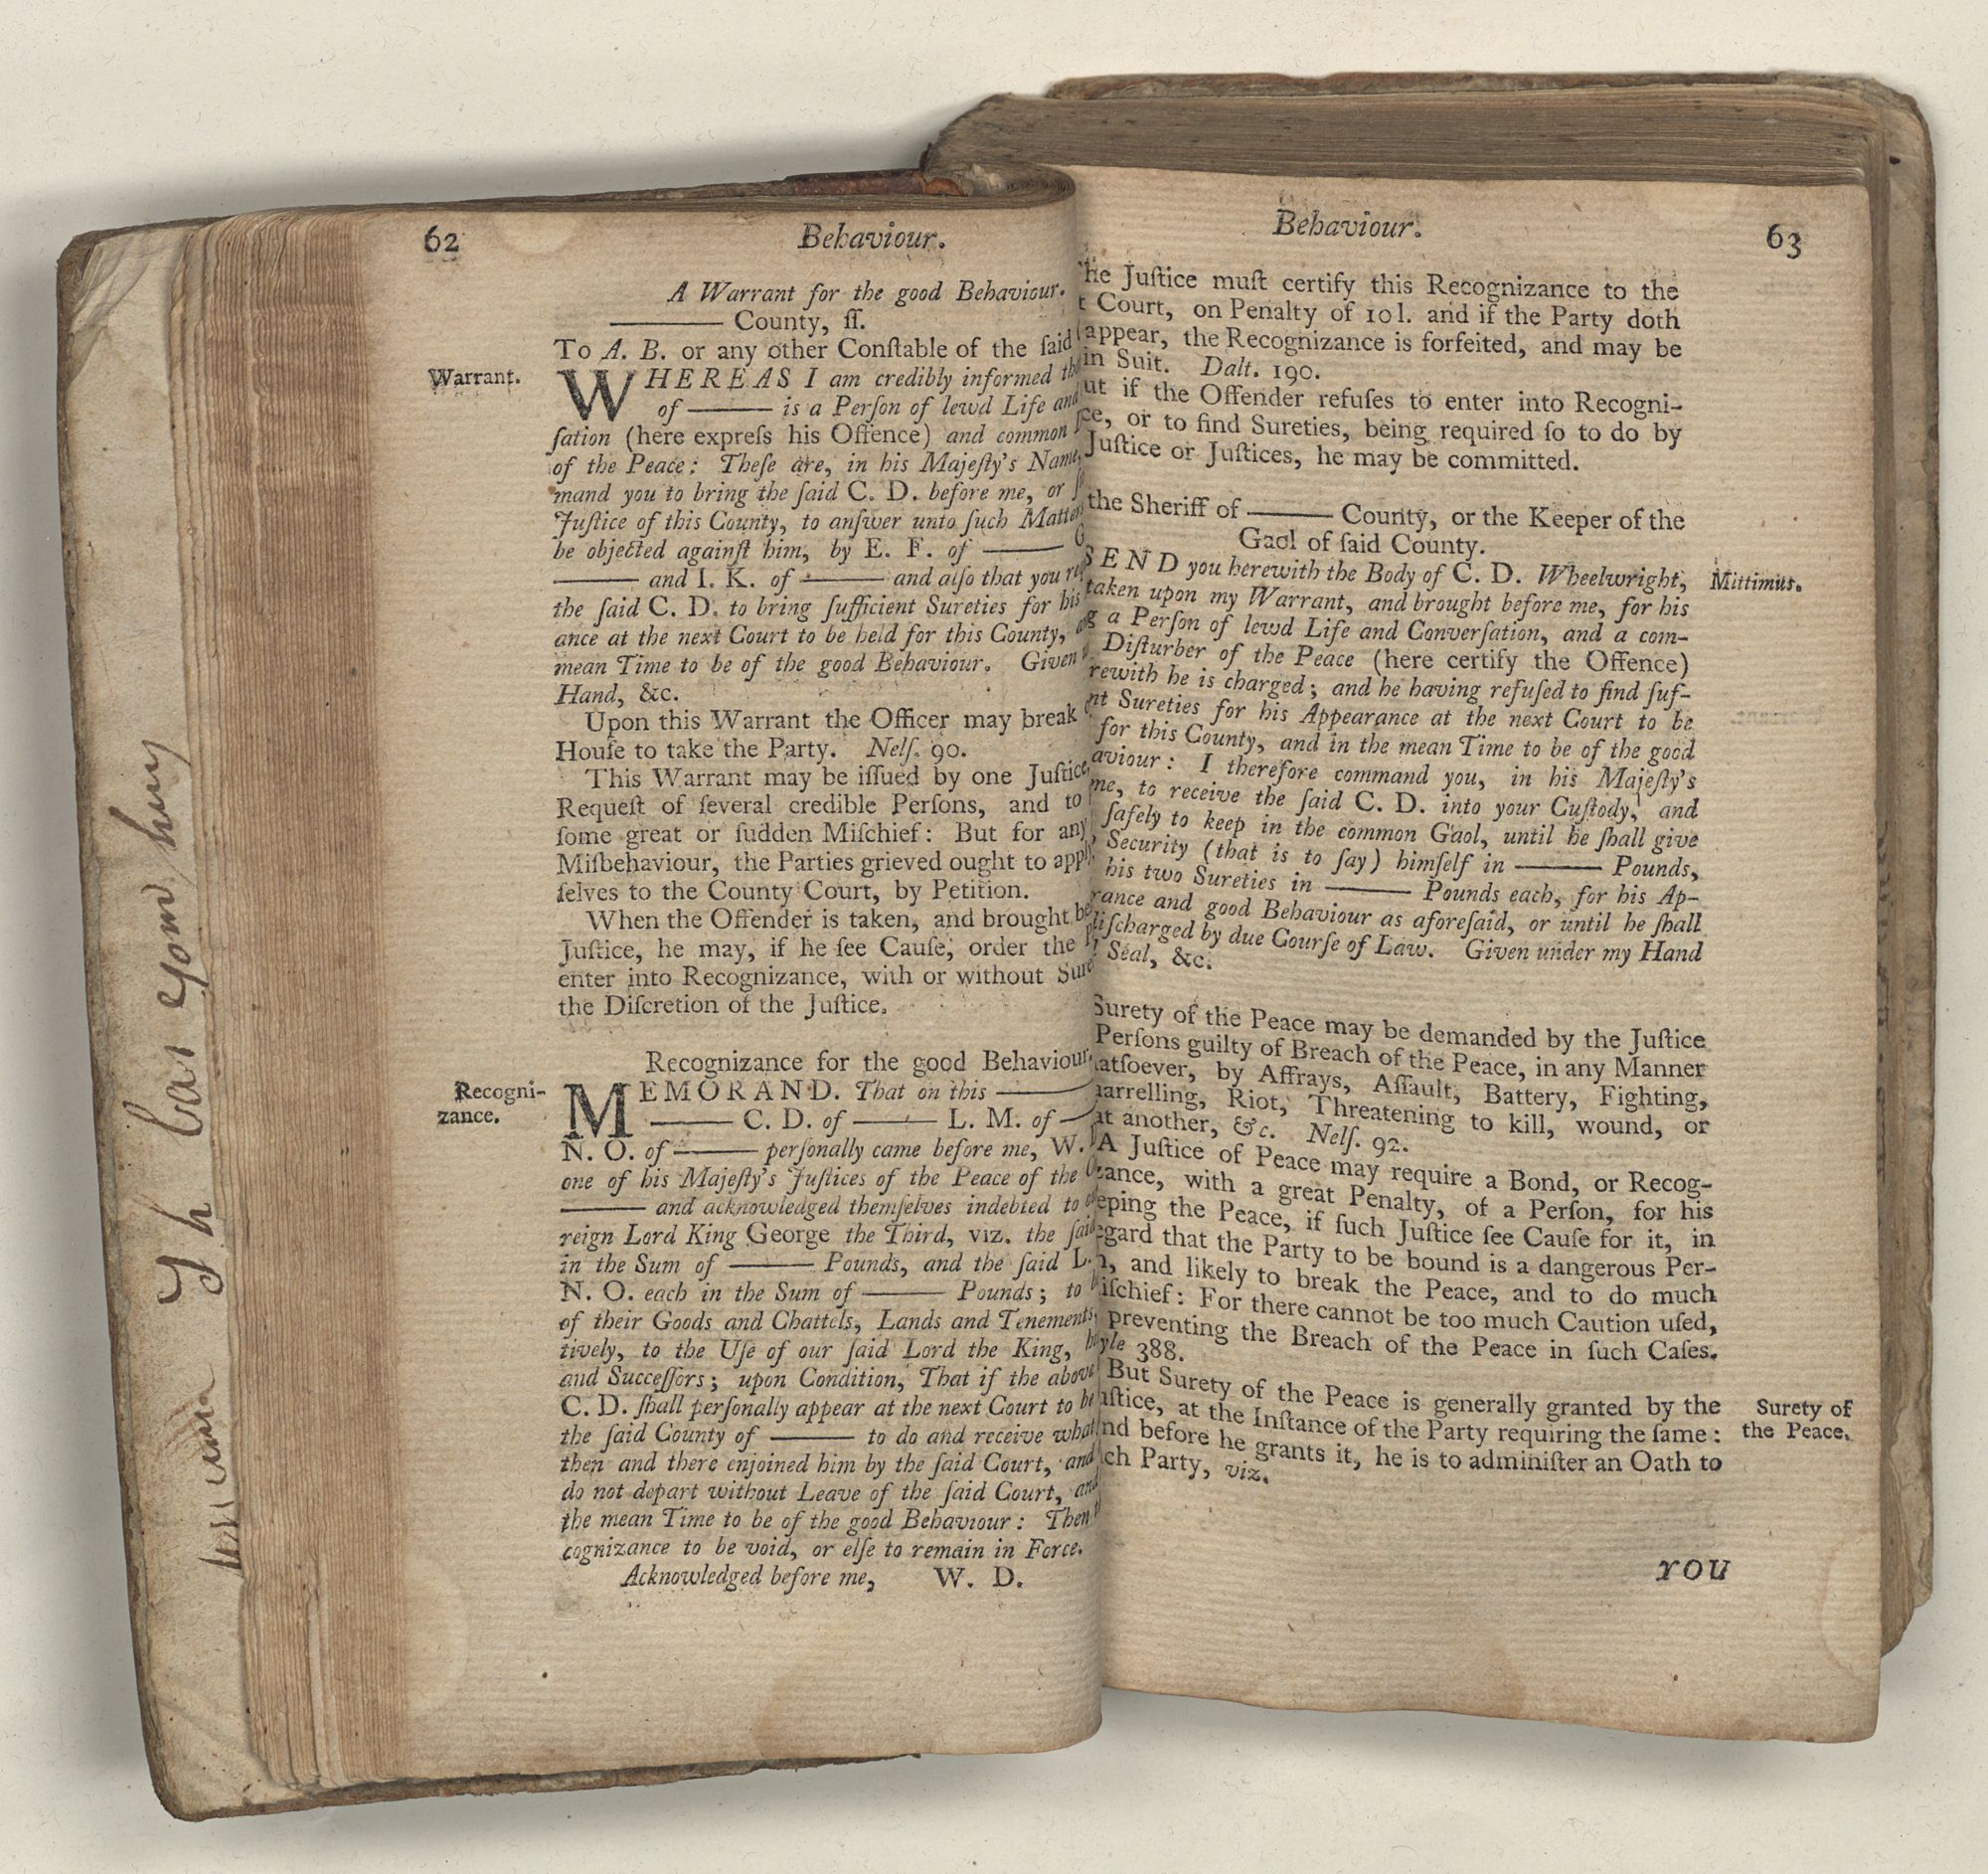 62 Behaviour.
A Warrant for the good Behaviour.
——— County, ſſ.
To A. B. or any other Conſtable of the ſaid
Warrant.
WHEREAS I am credibly informed
of ——— is a Perſon of lewd Life and
ſation (here expreſs his Offence) and common
of the Peace: Theſe are, in his Majeſty's Name,
mand you to bring the ſaid C. D. before me, or
Juſtice of this County, to anſwer unto ſuch Matter
be objected againſt him, by E. F. of ——— G
——— and I. K. of ——— and alſo that you
the ſaid C. D. to bring ſufficient Sureties for his
ance at the next Court to be held for this County,
mean Time to be of the good Behaviour. Given
Hand, &c.
Upon this Warrant the Officer may break
Houſe to take the Party. Nelſ. 90.
This Warrant may be iſſued by one Juſtice,
Requeſt of ſeveral credible Perſons, and to
ſome great or ſudden Miſchief: But for any
Miſbehaviour, the Parties grieved ought to apply
ſelves to the County Court, by Petition.
When the Offender is taken, and brought be
Juſtice, he may, if he ſee Cauſe, order the
enter into Recognizance, with or without Sure
the Diſcretion of the Juſtice.
Recognizance for the good Behaviour.
Recogni-
zance.
MEMORAND. That on this ———
——— C. D. of ——— L. M. of —
N. O. of ——— perſonally came before me, W.
one of his Majeſty's Juſtices of the Peace of the
——— and acknowledged themſelves indebted to
reign Lord King George the Third, viz. the ſaid
in the Sum of ——— Pounds, and the ſaid L.
N. O. each in the Sum of ——— Pounds; to
of their Goods and Chattels, Lands and Tenements,
tively, to the Uſe of our ſaid Lord the King,
and Succeſſors; upon Condition, That if the above
C. D. ſhall perſonally appear at the next Court to be
the ſaid County of ——— to do and receive what
then and there enjoined him by the ſaid Court, and
do not depart without Leave of the ſaid Court, and
the mean Time to be of the good Behaviour: Then
cognizance to be void, or elſe to remain in Force.
Acknowledged before me, W. D.
Behaviour. 63
he Juſtice muſt certify this Recognizance to the
t Court, on Penalty of 10l. and if the Party doth
appear, the Recognizance is forfeited, and may be
in Suit. Dalt. 190.
ut if the Offender refuſes to enter into Recogni-
ce, or to find Sureties, being required ſo to do by
Juſtice or Juſtices, he may be committed.
the Sheriff of ——— County, or the Keeper of the
Gaol of ſaid County.
SEND you herewith the Body of C. D. Wheelwright,
Mittimus.
taken upon my Warrant, and brought before me, for his
g a Perſon of lewd Life and Converſation, and a com-
Diſturber of the Peace (here certify the Offence)
rewith he is charged; and he having refuſed to find ſuf-
nt Sureties for his Appearance at the next Court to be
for this County, and in the mean Time to be of the good
aviour: I therefore command you, in his Majeſty's
me, to receive the ſaid C. D. into your Cuſtody, and
ſafely to keep in the common Gaol, until he ſhall give
Security (that is to ſay) himſelf in ——— Pounds,
his two Sureties in ——— Pounds each, for his Ap-
rance and good Behaviour as aforeſaid, or until he ſhall
diſcharged by due Courſe of Law. Given under my Hand
Seal, &c.
Surety of the Peace may be demanded by the Juſtice
Perſons guilty of Breach of the Peace, in any Manner
atſoever, by Affrays, Aſſault, Battery, Fighting,
arrelling, Riot, Threatening to kill, wound, or
at another, &c. Nelſ. 92.
A Juſtice of Peace may require a Bond, or Recog-
zance, with a great Penalty, of a Perſon, for his
eping the Peace, if ſuch Juſtice ſee Cauſe for it, in
egard that the Party to be bound is a dangerous Per-
n, and likely to break the Peace, and to do much
iſchief: For there cannot be too much Caution uſed,
preventing the Breach of the Peace in ſuch Caſes.
yle 388.
But Surety of the Peace is generally granted by the
Surety of
the Peace.
uſtice, at the Inſtance of the Party requiring the ſame:
nd before he grants it, he is to adminiſter an Oath to
ch Party, viz.
YOU